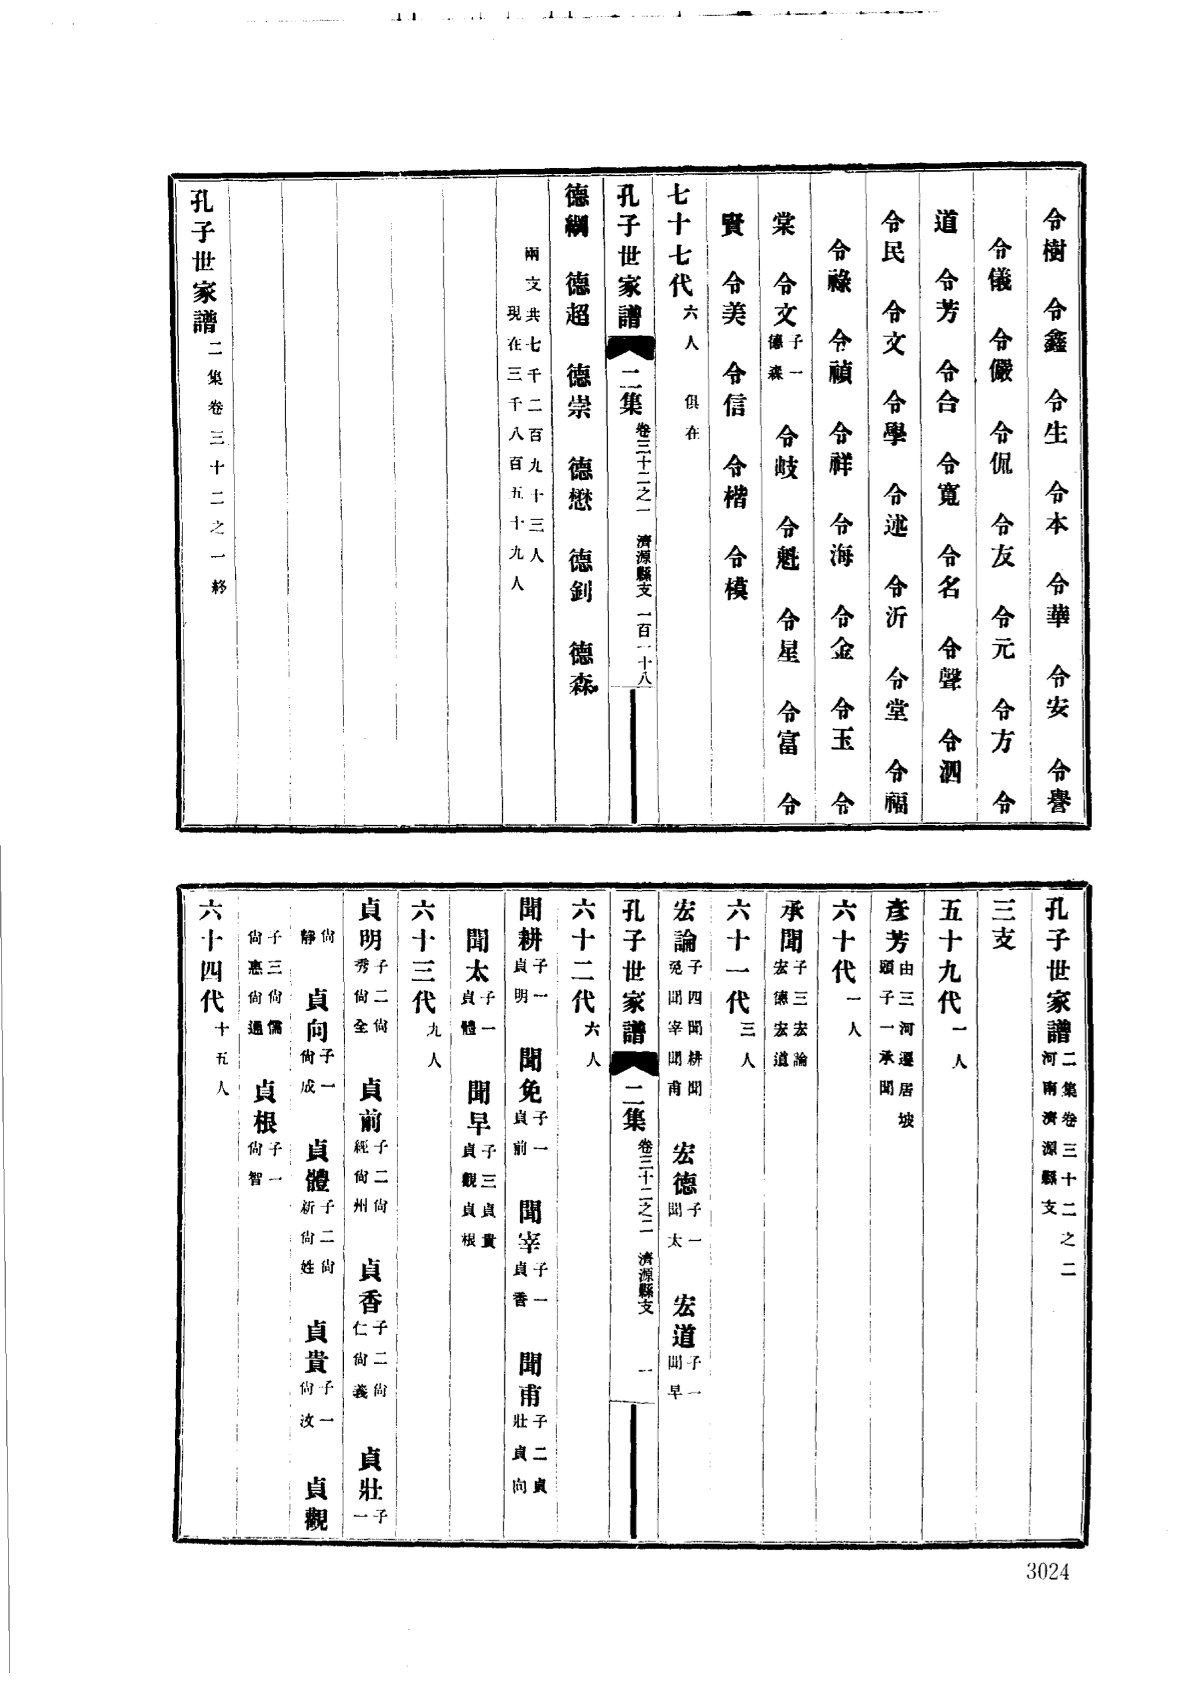 令樹 令鑫 令生 令本 令華 令安 令譽
令儀 令儼 令侃 令友 令元 令方 令
道 令芳 令合 令寬 令名 令聲 令泗
令民 令文 令學 令述 令沂 令堂 令福
令祿 令禎 令祥 令海 令金 令玉 令
棠 令文子一德森 令歧 令魁 令星 令富 令
賢 令美 令信 令楷 令模
七十七代六人俱在
孔子世家譜 二集 卷三十二之一 濟源縣支 一百一十八
德綱 德超 德崇 德懋 德釗 德森
兩文共七千二百九十三人
現在三千八百五十九人
孔子世家譜二集卷三十二之一終
孔子世家譜二集卷三十二之二河南濟源縣支
三支
五十九代一人
彥芳由三河遷居坡頭子一承聞
六十代一人
承聞子三宏論宏德宏道
六十一代三人
宏論子四聞耕聞免聞宰聞甫 宏德子一聞太 宏道子一聞早
孔子世家譜 二集 卷三十二之二 濟源縣支 一
六十二代六人
聞耕子一貞明 聞免子一貞前 聞宰子一貞香 聞甫子二貞壯貞向
聞太子一貞體 聞早子三貞貴貞觀貞根
六十三代九人
貞明子二尙秀尙全 貞前子二尙經尙州 貞香子二尙仁尙義 貞壯子一
尙靜 貞向子一尙成 貞體子二尙新尙姓 貞貴子一尙汝 貞觀
子三尙儒尙惠尙通 貞根子一尙智
六十四代十五人
3024